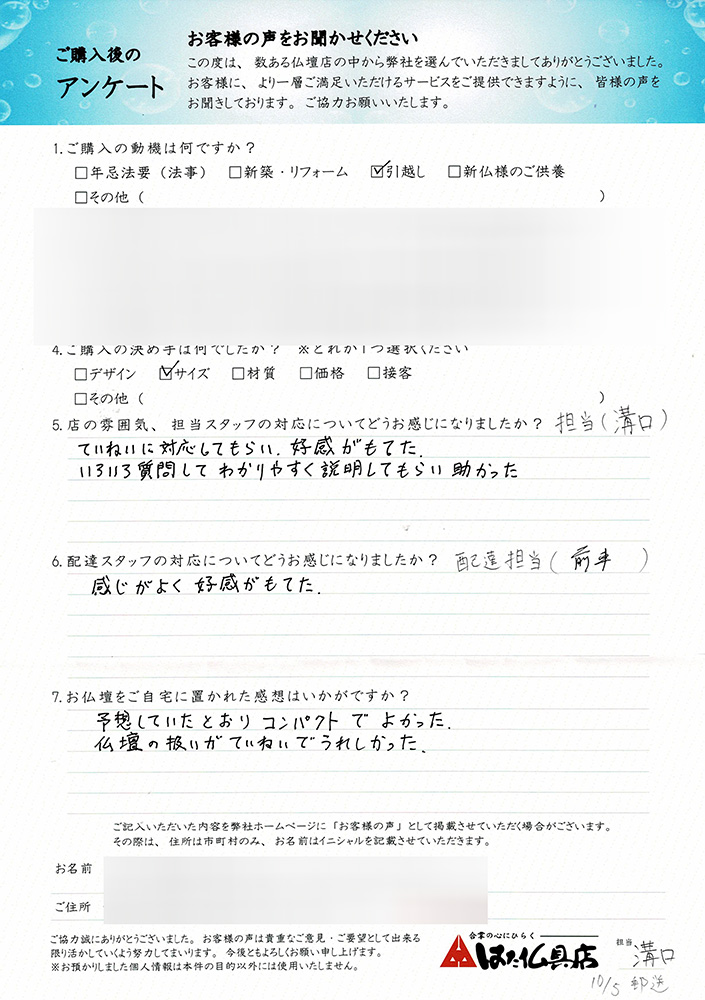 ご購入後の
アンケート
お客様の声をお聞かせください
この度は、数ある仏壇店の中から弊社を選んでいただきましてありがとうございました。
お客様に、より一層ご満足いただけるサービスをご提供できますように、皆様の声を
お聞きしております。ご協力お願いいたします。
1.ご購入の動機は何ですか？
□年忌法要（法事） □新築・リフォーム ☑引越し □新仏様のご供養
□その他（ ）
4.ご購入の決め手は何でしたか？ ※どれか1つ選択ください
□デザイン ☑サイズ □材質 □価格 □接客
□その他（ ）
5.店の雰囲気、担当スタッフの対応についてどうお感じになりましたか？ 担当（溝口）
ていねいに対応してもらい.好感がもてた.
いろいろ質問して わかりやすく説明してもらい 助かった
6.配達スタッフの対応についてどうお感じになりましたか？ 配達担当（ ）
感じがよく 好感がもてた.
7.お仏壇をご自宅に置かれた感想はいかがですか？
予想していたとおり コンパクトで よかった.
仏壇の扱いが ていねいで うれしかった.
ご記入いただいた内容を弊社ホームページに「お客様の声」として掲載させていただく場合がございます。
その際は、住所は市町村のみ、お名前はイニシャルを記載させていただきます。
お名前
ご住所
ご協力誠にありがとうございました。お客様の声は貴重なご意見・ご要望として出来る
限り活かしていくよう努力してまいります。今後ともよろしくお願い申し上げます。
※お預かりしました個人情報は本件の目的以外には使用いたしません。
合掌の心にひらく
はた仏具店
担当 溝口
10/5 郵送